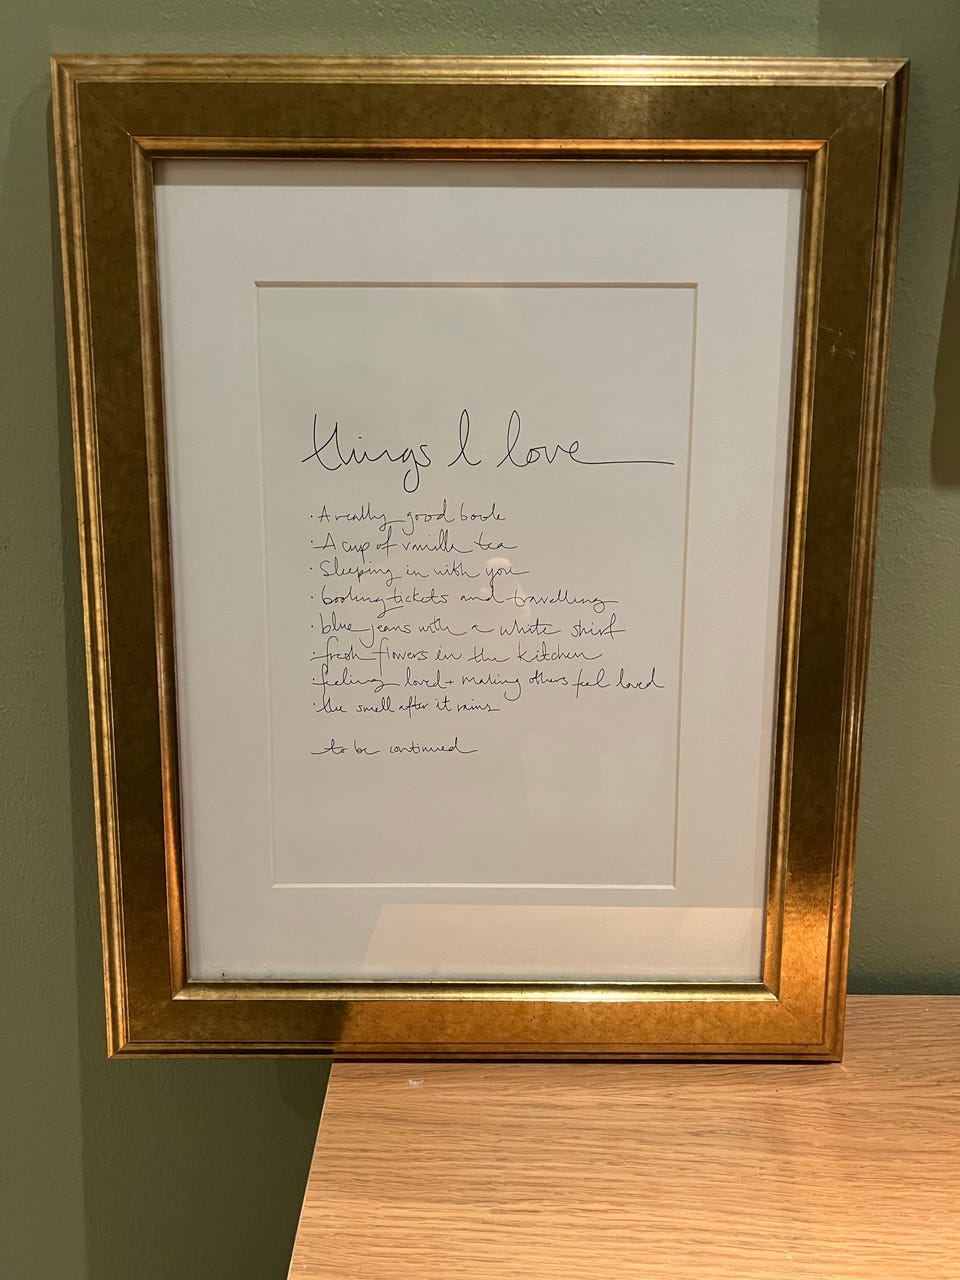 things I love
· A really good book
· A cup of vanilla tea
· Sleeping in with you
· booking tickets and travelling
· blue jeans with a white shirt
· fresh flowers in the kitchen
· feeling loved + making others feel loved
· the smell after it rains
to be continued